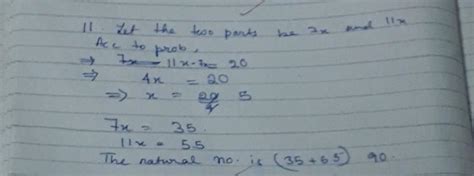 11. Let the two parts be 7x and 11x
Acc to prob,
⇒ 11x-7x= 20
⇒ 4x = 20
⇒ x = 20/4 5
7x = 35.
11x = 55
The natural no. is (35+55) 90.